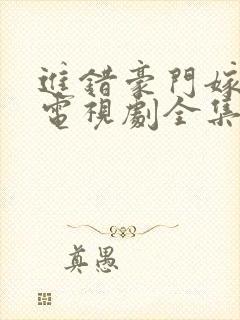 進錯豪門嫁
電視劇全集
真愚